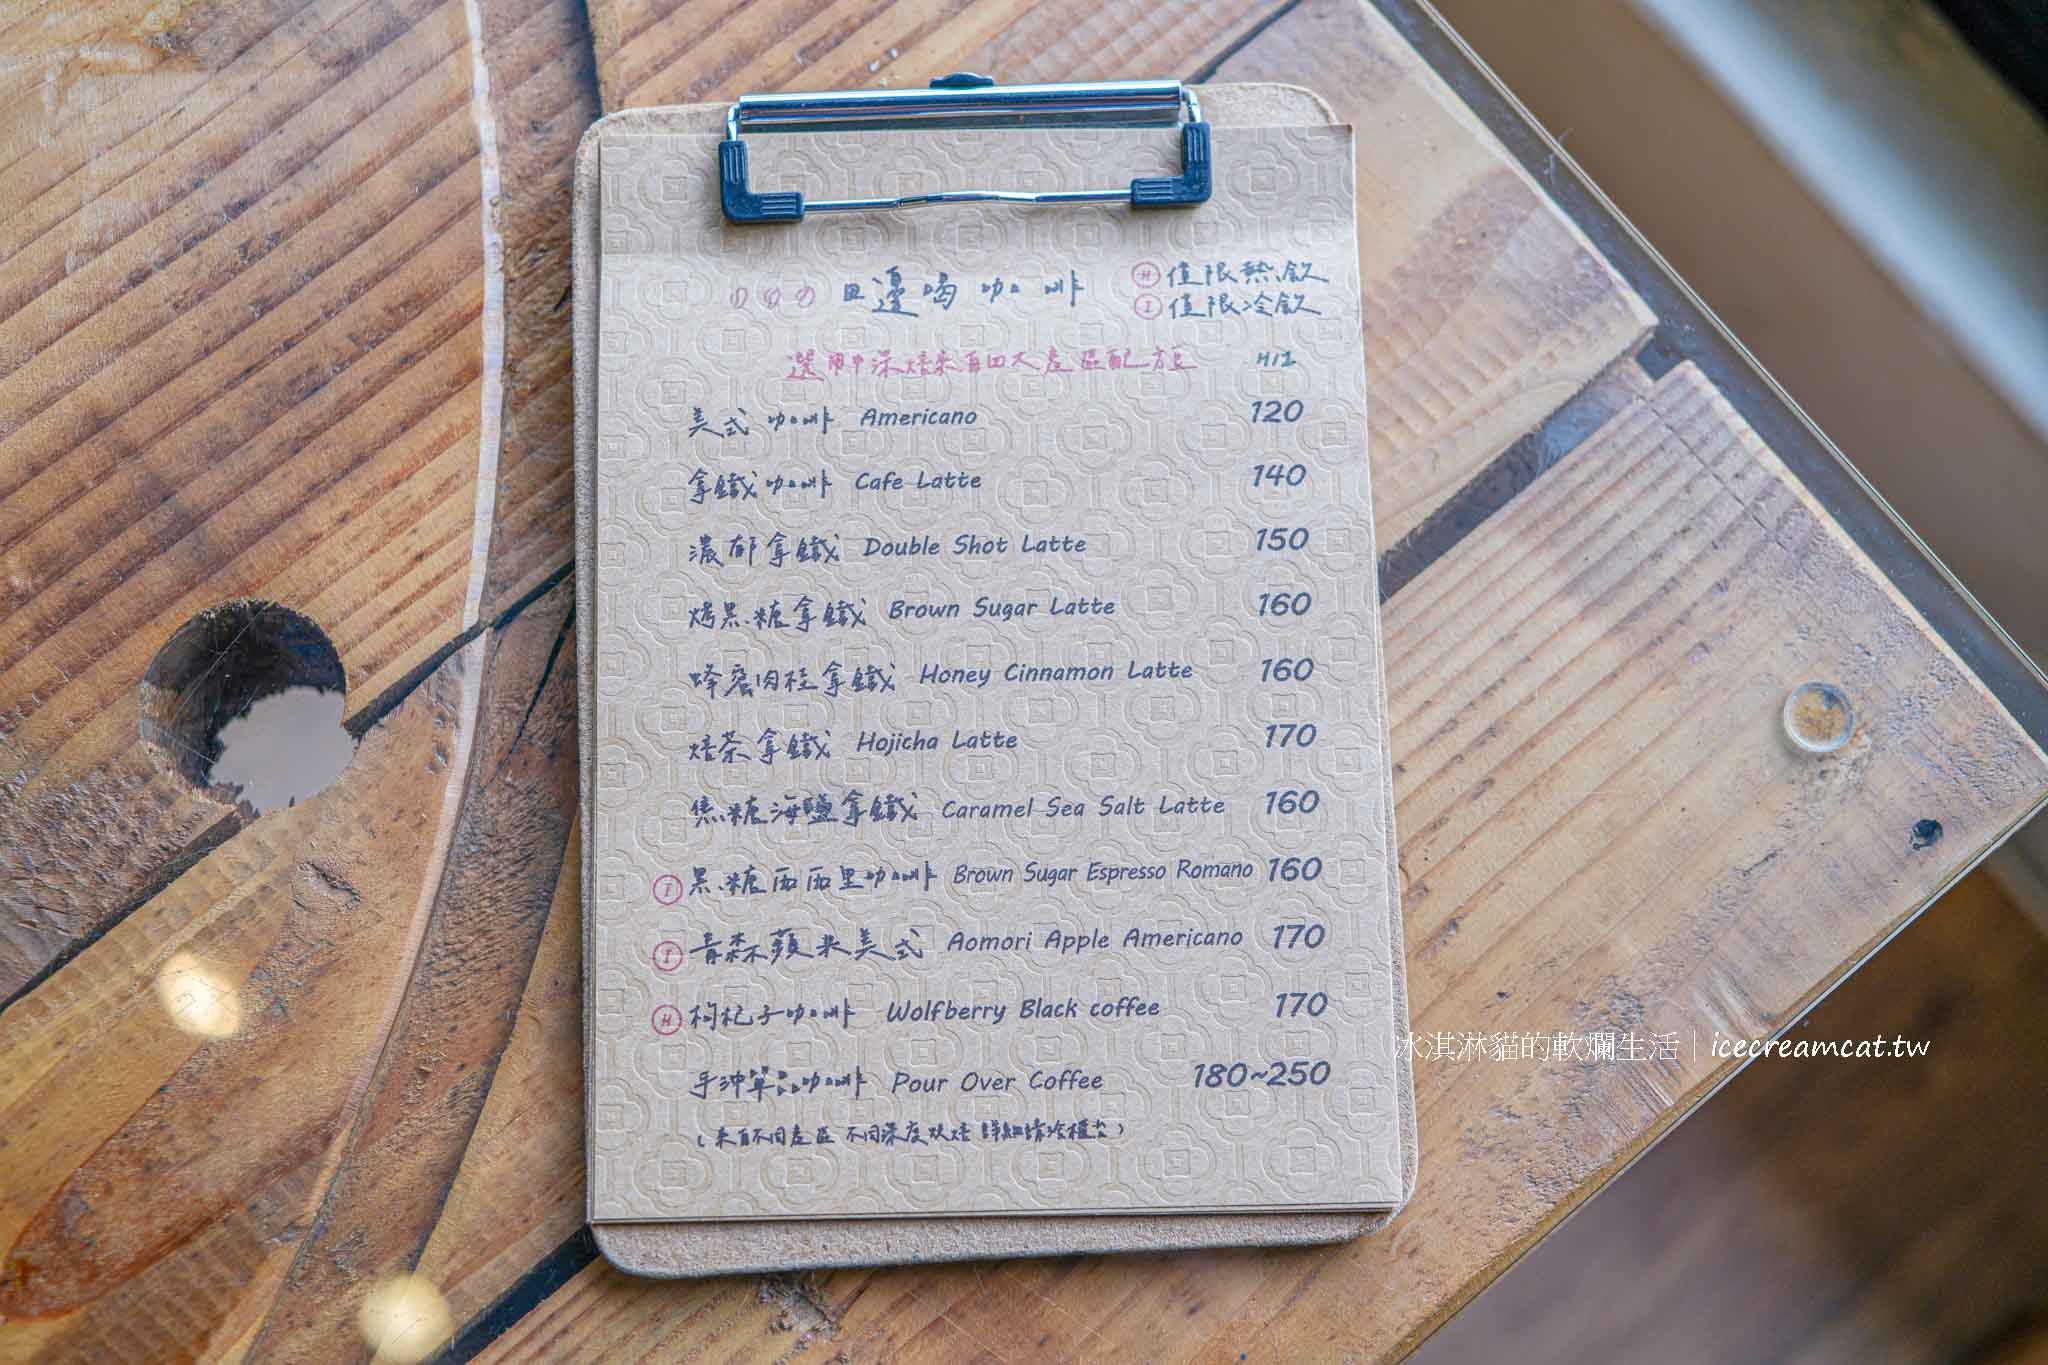 田邊喝咖啡
Ⓗ 僅限熱飲
Ⓘ 僅限冷飲
選用中深焙來自四大產區配方豆 H/I
美式咖啡 Americano 120
拿鐵咖啡 Cafe Latte 140
濃郁拿鐵 Double Shot Latte 150
烤黑糖拿鐵 Brown Sugar Latte 160
蜂蜜肉桂拿鐵 Honey Cinnamon Latte 160
焙茶拿鐵 Hojicha Latte 170
焦糖海鹽拿鐵 Caramel Sea Salt Latte 160
Ⓘ 黑糖西西里咖啡 Brown Sugar Espresso Romano 160
Ⓘ 青森蘋果美式 Aomori Apple Americano 170
Ⓗ 枸杞子咖啡 Wolfberry Black coffee 170
手沖單品咖啡 Pour Over Coffee 180~250
(來自不同產區 不同深度烘焙 詳細請洽櫃台)
冰淇淋貓的軟爛生活|icecreamcat.tw